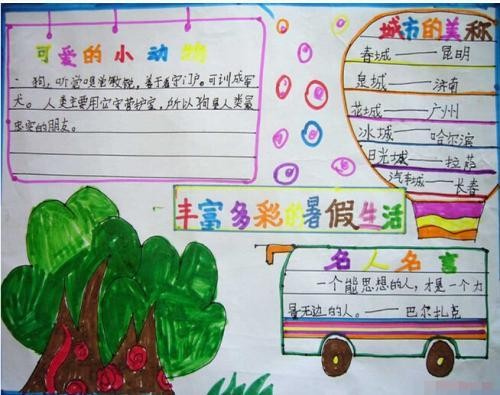 可爱的小动物
狗，听觉嗅觉敏锐，善于看守门户。可训成军
犬。人类主要用它守护室，所以狗是人类最
忠实的朋友。
城市的美称
春城——昆明
泉城——济南
花城——广州
冰城——哈尔滨
日光城——拉萨
汽车城——长春
丰富多彩的暑假生活
名人名言
一个能思想的人，才是一个力
量无边的人。——巴尔扎克